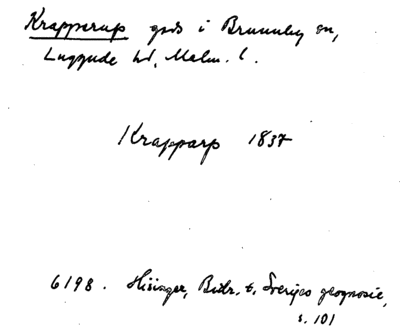 Krapperup gods i Brunnby sn,
Luggude hd, Malm. l.
Krapparp 1837
6198. Hisinger, Bidr. t. Sveriges geognosie,
s. 101